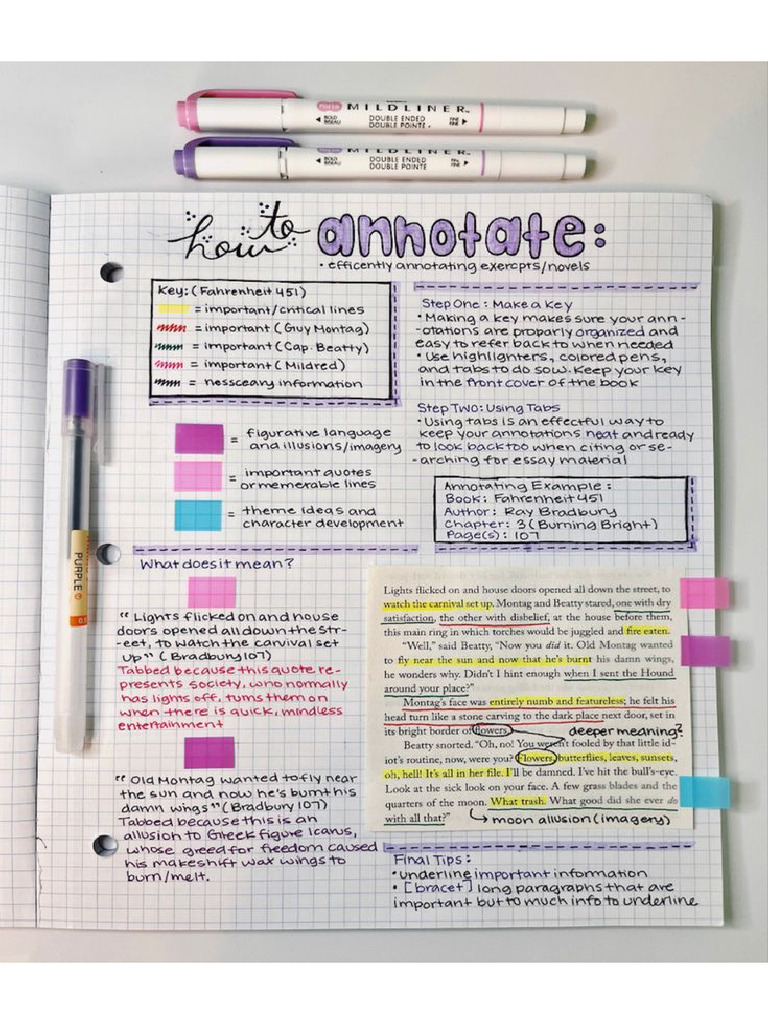 MILDLINER
BOLD BISEAU
DOUBLE ENDED
DOUBLE POINTE
FINE FINE
MILDLINER
BOLD BISEAU
DOUBLE ENDED
DOUBLE POINTE
FINE FINE
how to annotate:
• efficently annotating exercpts/novels
Key: (Fahrenheit 451)
= important/critical lines
= important (Guy Montag)
= important (Cap. Beatty)
= important (Mildred)
= nessceary information
= figurative language
and illusions/imagery
= important quotes
or memorable lines
= theme ideas and
character development
Step One: Make a Key
• Making a key makes sure your ann-
-otations are proparly organized and
easy to refer back to when needed
• Use highlighters, colored pens,
and tabs to do sow. Keep your key
in the front cover of the book
Step Two: Using Tabs
• Using tabs is an effectful way to
keep your annotations neat and ready
to look back too when citing or se-
-arching for essay material
Annotating Example:
Book: Fahrenheit 451
Author: Ray Bradbury
Chapter: 3 (Burning Bright)
Page(s): 107
PURPLE
What does it mean?
"Lights flicked on and house
doors opened all down the str-
-eet, to watch the carvival set
up" (Bradbury 107)
Tabbed because this quote re-
presents society, who normally
has lights off, turns them on
when there is quick, mindless
entertainment
"Old Montag wanted to fly near
the sun and now he's burnt his
damn wings" (Bradbury 107)
Tabbed because this is an
allusion to Greek figure Icarus,
whose greed for freedom caused
his makeshift wax wings to
burn/melt.
Lights flicked on and house doors opened all down the street, to
watch the carnival set up. Montag and Beatty stared, one with dry
satisfaction, the other with disbelief, at the house before them,
this main ring in which torches would be juggled and fire eaten.
"Well," said Beatty, "Now you did it. Old Montag wanted
to fly near the sun and now that he's burnt his damn wings,
he wonders why. Didn't I hint enough when I sent the Hound
around your place?"
Montag's face was entirely numb and featureless; he felt his
head turn like a stone carving to the dark place next door, set in
its bright border of flowers.
deeper meaning?
Beatty snorted. "Oh, no! You weren't fooled by that little id-
iot's routine, now, were you? Flowers, butterflies, leaves, sunsets,
oh, hell! It's all in her file. I'll be damned. I've hit the bull's-eye.
Look at the sick look on your face. A few grass blades and the
quarters of the moon. What trash. What good did she ever do
with all that?"
moon allusion (imagery)
Final Tips:
• underline important information
• [bracet] long paragraphs that are
important but to much info to underline